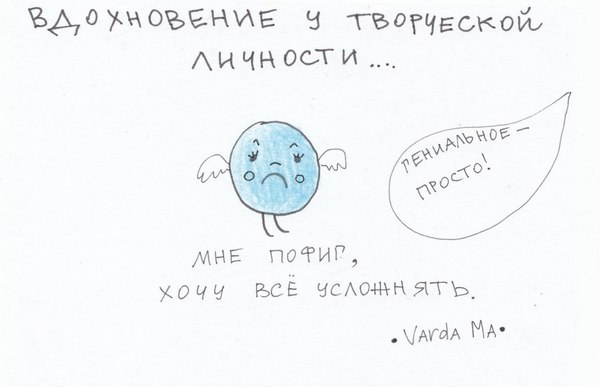 ВДОХНОВЕНИЕ У ТВОРЧЕСКОЙ
ЛИЧНОСТИ....
ГЕНИАЛЬНОЕ —
ПРОСТО!
МНЕ ПОФИГ,
ХОЧУ ВСЁ УСЛОЖНЯТЬ.
•Varda Ma•